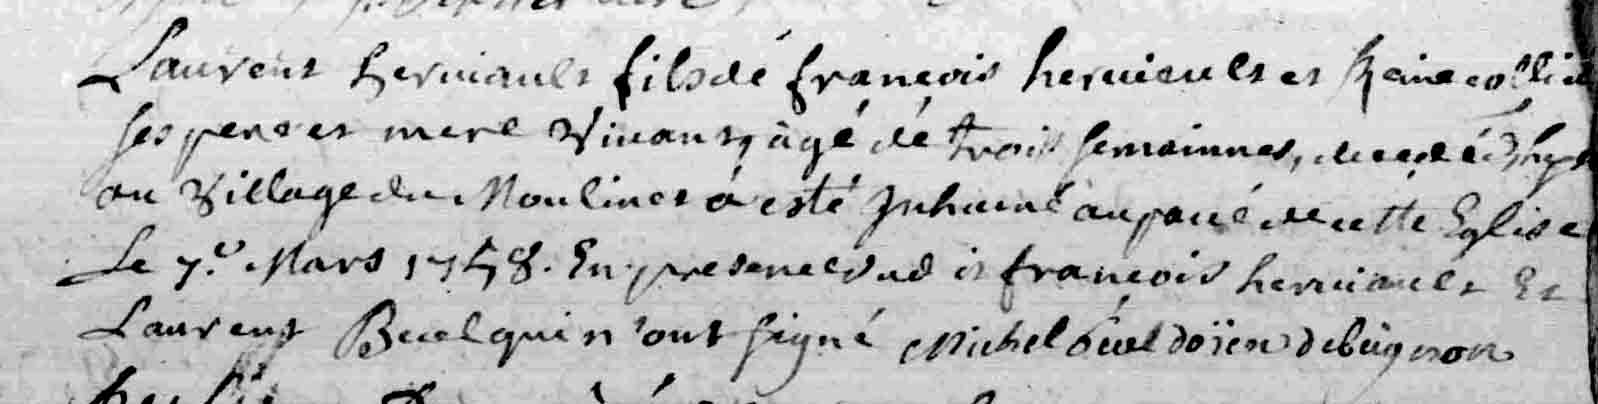 Laurent herviault fils dé françois herviault et Reine collié
ses pere et mere Vivants, âgé dé trois semainnes, decedé d'hyer
au Village du Moulinet a esté Inhumé au pavé de cette Eglise
Le 7.e Mars 1758. En presence dud it françois herviault Et
Laurent Buel qui n'ont signé Michel buel doïen de buignon